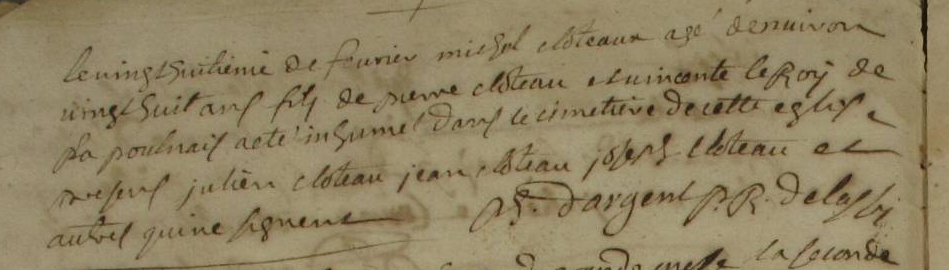 le vingt huitieme de feuvrier michel cloteaux agé denuiron
uingt huit ans fils de pierre cloteau et uincente le Roy de
la poulnais a eté inhumé dans le cimetiere de cette eglise
presens julien cloteau jean cloteau joseph cloteau et
autres qui ne signent d'argent p. R. de lassi
la seconde